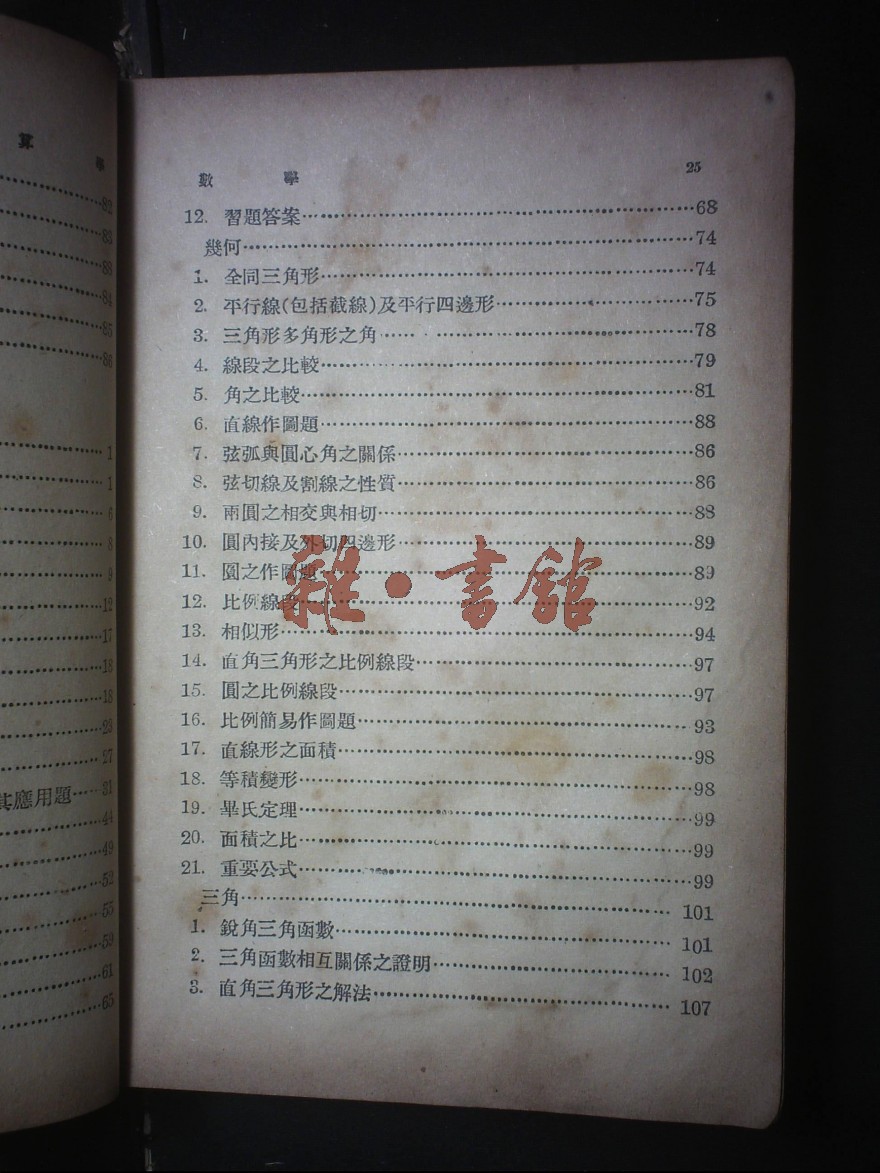 算
學
82
83
83
84
85
86
1
1
6
8
9
12
17
18
18
23
27
其應用題……31
44
49
52
55
59
61
65
數 學 25
12. 習題答案……68
幾何……74
1. 全同三角形……74
2. 平行線(包括截線)及平行四邊形……75
3. 三角形多角形之角……78
4. 線段之比較……79
5. 角之比較……81
6. 直線作圖題……88
7. 弦弧與圓心角之關係……86
8. 弦切線及割線之性質……86
9. 兩圓之相交與相切……88
10. 圓內接及外切四邊形……89
11. 圓之作圖題……89
12. 比例線段……92
13. 相似形……94
14. 直角三角形之比例線段……97
15. 圓之比例線段……97
16. 比例簡易作圖題……93
17. 直線形之面積……98
18. 等積變形……98
19. 畢氏定理……99
20. 面積之比……99
21. 重要公式……99
三角……101
1. 銳角三角函數……101
2. 三角函數相互關係之證明……102
3. 直角三角形之解法……107
雜·書館